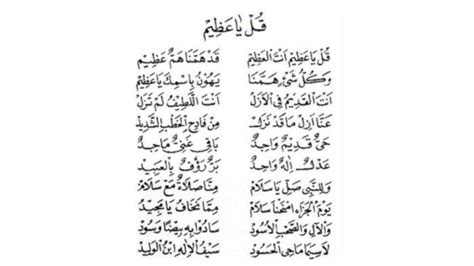 قُلْ يَا عَظِيْمُ
قُلْ يَا عَظِيْمُ اَنْتَ الْعَظِيْمُ قَدْ هَمَّنَا هَمٌّ عَظِيْمٌ
وَكُلُّ شَيْءٍ هَمَّنَا يَهُوْنُ بِاسْمِكَ يَا عَظِيْمُ
اَنْتَ الْقَدِيْمُ فِي الْاَزَلِ اَنْتَ اللَّطِيْفُ لَمْ تَزَلْ
عَنَّا اَزِلْ مَا قَدْ نَزَلْ مِنْ فَادِحِ الْخَطْبِ الشَّدِيْدِ
حَيٌّ قَدِيْمٌ وَاجِدٌ بَاقِي غَنِيٌّ مَاجِدٌ
عَدْلٌ اِلٰهٌ وَاحِدٌ بَرٌّ رَؤُفٌ بِالْعَبِيْدِ
وَلِلنَّبِي صَلِّ يَا سَلَامْ مِنَّا صَلَاةً مَعْ سَلَامْ
يَوْمَ الْجَزَاءِ امْنَحْنَا سَلَامْ مِمَّا نَخَافُ يَا مَجِيْدُ
وَالْآلِ وَالصَّحْبِ الْاُسُوْدِ سَادُوْا بِهِ بِيْضًا وَسُوْدِ
لَاسِيَّمَا مَاحِي الْحَسُوْدِ سَيْفُ الْاِلٰهِ ابْنُ الْوَلِيْدِ